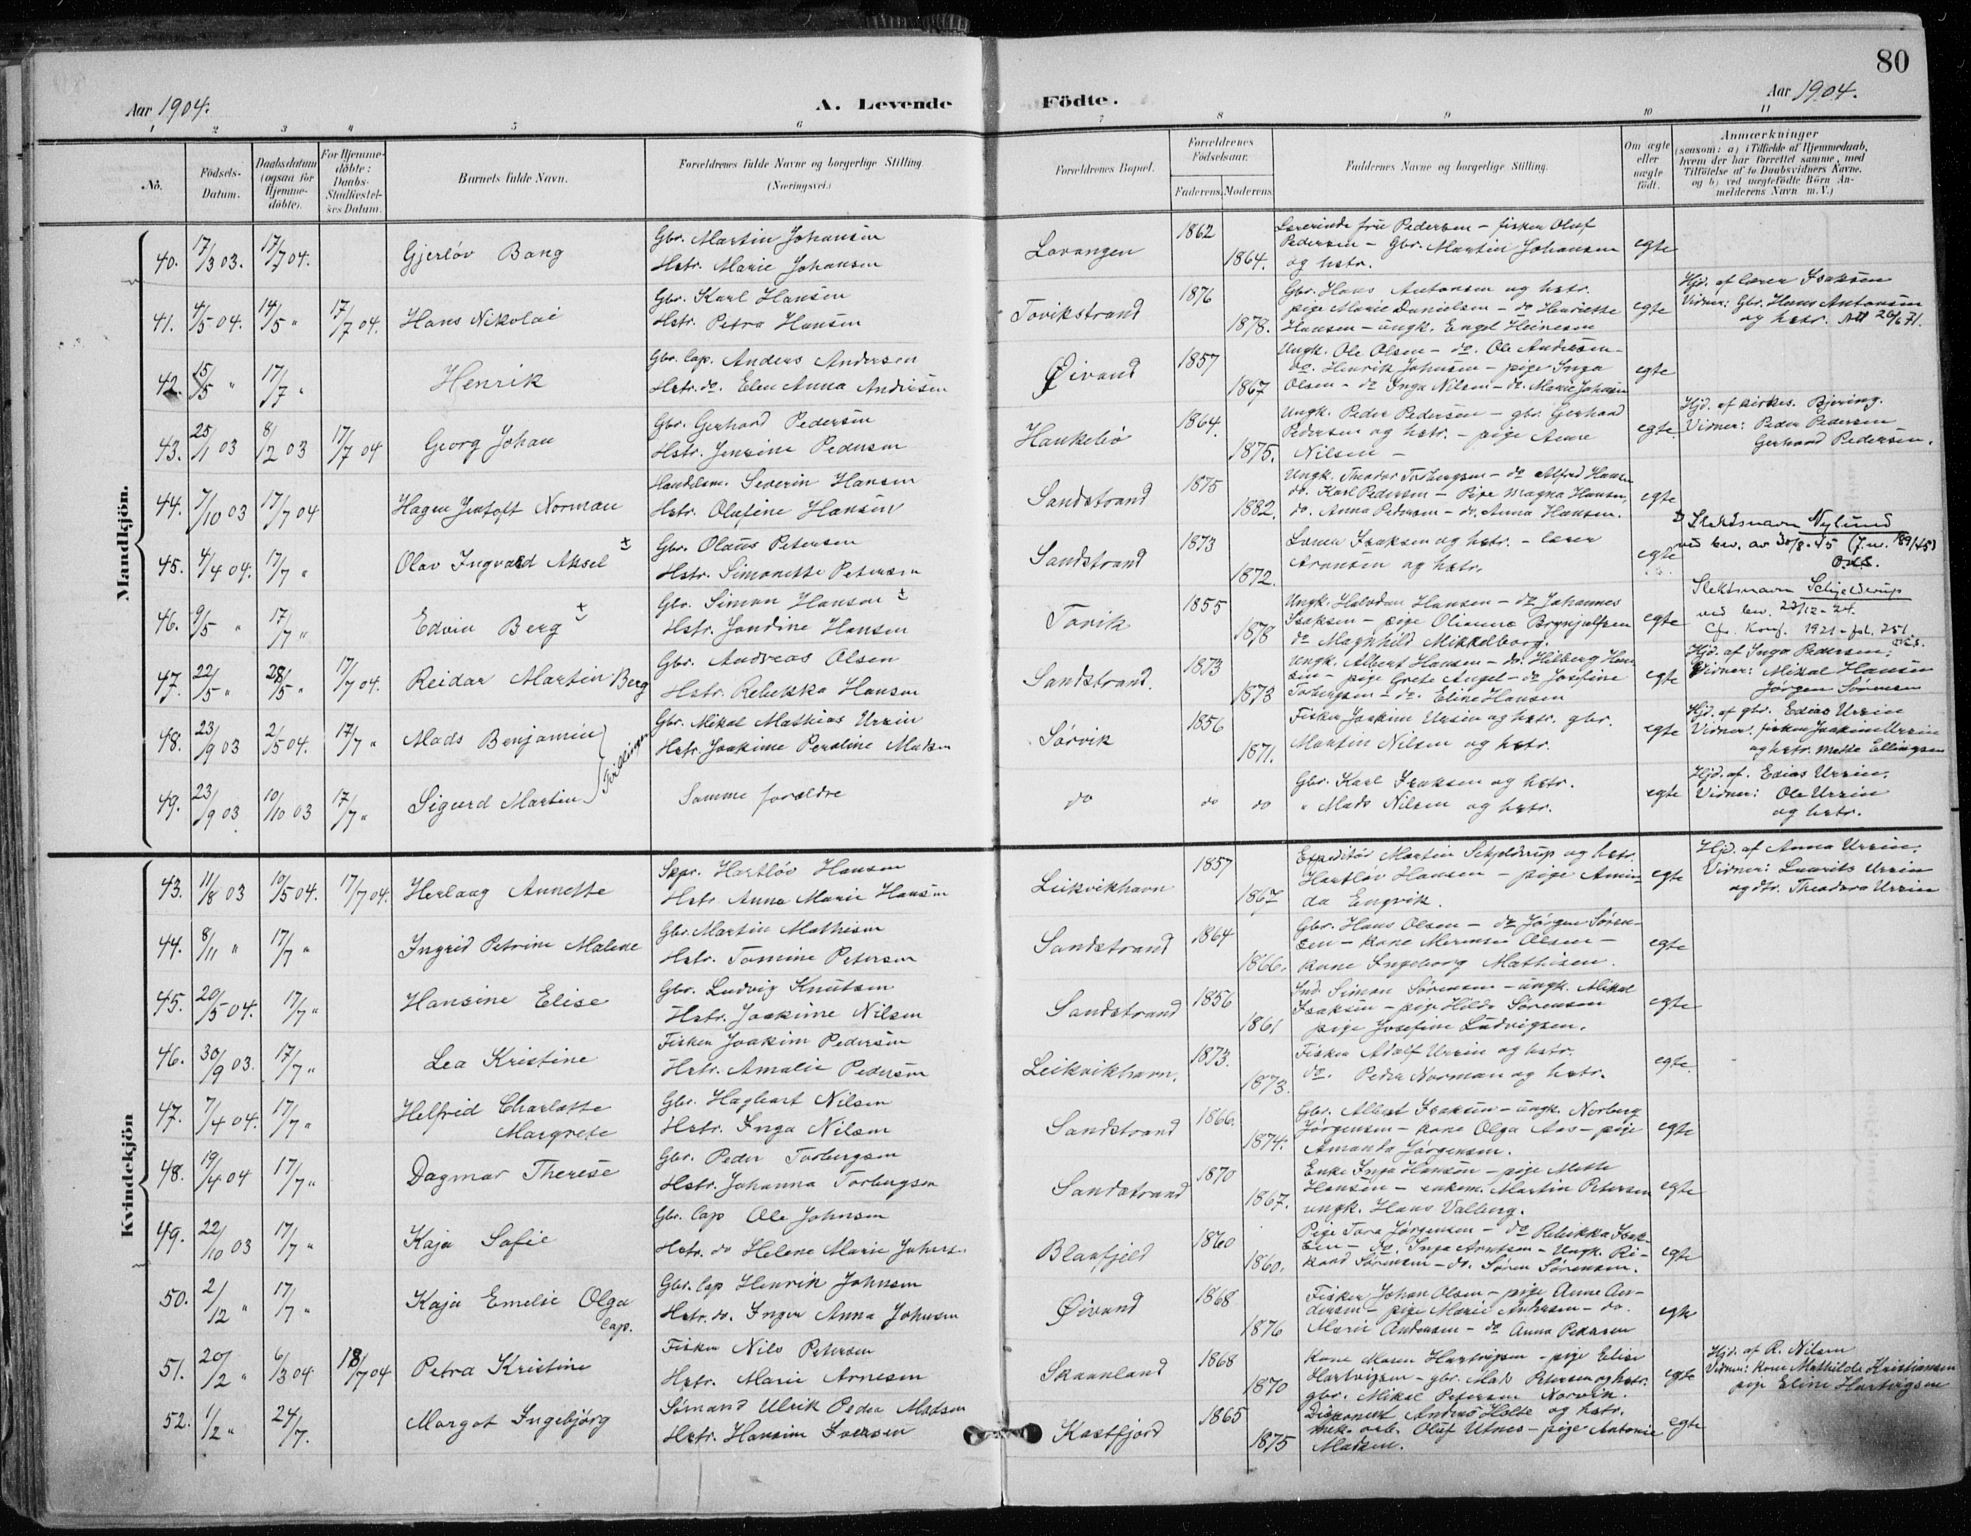 80
Aar 1904.
A. Levende Födte.
Aar 1904.
1 2 3 4 5 6 7 8 9 10 11
No.
Fødsels-Datum.
Daabsdatum (ogsaa for Hjemme-døbte).
For Hjemme-døbte: Daabs-Stadfæstel-ses Datum.
Barnets fulde Navn.
Forældrenes fulde Navne og borgerlige Stilling (Næringsvei.)
Forældrenes Bopæl.
Forældrenes Fødselsaar.
Faderens. Moderens.
Faddernes Navne og borgerlige Stilling.
Om ægte eller uægte født.
Anmærkninger (saasom: a) i Tilfælde af Hjemmedaab, hvem der har forrettet samme, med Tilføielse af to Daabsvidners Navne, og b) ved uægtefødte Børn An-melderens Navn m. V.)
Mandkjön.
40. 17/3 03. 17/7 04. Gjerløv Bang
Gbr. Martin Johansen
Hstr. Marie Johansen
Lavangen 1862 1864.
Lærerinde frú Pedersen – fisker Oluf
Pedersen – Gbr. Martin Johansen
og hstr.
egte
41. 4/5 04. 14/5 " 17/7 04. Hans Nikolai
Gbr. Karl Hansen
Hstr. Petra Hansen
Tovikstrand 1876 1878.
Gbr. Hans Antonsen og hstr.
pige Marie Danielsen – do Henriette
Hansen – ungk. Engel Heinesen
egte
Hjd. af lærer Isaksen
Vidner: Gbr. Hans Antonsen
og hstr. 20/6 71.
42. 25/5 " 17/7 " Henrik
Gbr. Lap. Anders Andersen
Hstr. do. Elen Anna Andersen
Øivand 1857 1867
Ungk. Ole Olsen – do. Ole Andersen –
do. Hinrik Johnsen – pige Inga
Olsen – do Inga Nilsen – do. Marie Johnsen
egte
43. 25/1 03 8/12 03 17/7 04 Georg Johan
Gbr. Gerhard Pedersen
Hstr. Jensine Pedersen
Haukebø 1864. 1875.
Ungk. Peder Pedersen – gbr. Gerhard
Pedersen og hstr. – pige Anne
Nilsen –
egte
Hjd. af kirkes. Bjering.
Vidner: Peder Pedersen
Gerhard Pedersen.
44. 7/10 03 17/7 04 Hagen Jentoft Norman
Handelsm. Severin Hansen
Hstr. Olufine Hansen
Sandstrand 1875 1882.
Ungk. Teodor Torbergsen – do Alfred Hansen
do. Karl Pedersen – Pige Magna Hansen,
do. Anna Pedersen – do. Anna Hansen.
egte
45. 4/4 04. 17/7 " Olav Ingvald Aksel ±
Gbr. Olaus Petersen
Hstr. Simonette Petersen
Sandstrand 1873 1872.
Lærer Isaksen og hstr. – lærer
Aronsen og hstr.
egte
Slektsnavn Nylund
ved bev. av 30/8-45 (J.n. 189/45)
46. 9/5 " 17/7 " Edvin Berg ±
Gbr. Simon Hansen ±
Hstr. Jondine Hansen
Tovik 1855 1878
Ungk. Halvdan Hansen – do Johannes
Isaksen – pige Olianna Brynjulfsen
do Magnhild Mikkelborg.
egte
Slektsnavn Schjelderup
ved bev. 23/12-24.
Cfr. Konf. 1921 – fol. 251
47. 22/5 " 28/5 " 17/7 04. Reidar Martin Berg
Gbr. Andreas Olsen
Hstr. Rebekka Hansen
Sandstrand. 1873 1873
Ungk. Albert Hansen – do. Hilberg Han-
sen – pige Grete Angel – do Josefine
Torbergsen – do. Eline Hansen
egte
Hjd. af Inga Pedersen.
Vidner: Mikal Hansen
Jørgen Sørensen
48. 23/9 03 2/5 04. 17/7 " Mads Benjamin
Tvillinger
Gbr. Mikal Mathias Ursin
Hstr. Joakime Peroline Madsen
Sørvik 1856 1871.
Fisker Joakim Ursin og hstr. gbr.
Martin Nilsen og hstr.
egte
Hjd. af gbr. Edias Ursin
Vidner: fisker Joakim Ursin
og hstr. Mette Ellingsen
49. 23/9 03 10/10 03 17/7 " Sigurd Martin
Samme forældre
do do do
Gbr. Karl Isaksen og hstr.
" Mads Nilsen og hstr.
egte
Hjd. af. Edias Ursin.
Vidner: Ole Ursin
og hstr.
Kvindekjön
43. 11/8 03 10/5 04. 17/7 04. Herlaug Annette
Skpr. Hartløv Hansen
Hstr. Anna Marie Hansen
Leikvikhavn 1857 1867
Expeditør Martin Schjelderup og hstr.
Hartløv Hansen – pige Amin-
da Engvik.
egte
Hjd. af Anna Ursin.
Vidner: Laurits Ursin
og dtr. Theodora Ursin
44. 8/11 " 17/7 " Ingrid Petrine Malene
Gbr. Martin Mathisen
Hstr. Tomine Petersen
Sandstrand 1864 1866.
Gbr. Hans Olsen – do Jørgen Søren-
sen – kone Olsen –
kone Ingeborg Mathisen.
egte
45. 20/5 04. 17/7 " Hansine Elise
Gbr. Ludvig Knutsen
Hstr. Joakime Nilsen
Sandstrand 1856 1861
Ind. Simon Sørensen – ungk. Mikal
Isaksen – pige Hilda Sørensen
pige Josefine Ludvigsen.
egte
46. 30/9 03. 17/7 " Lea Kristine
Fisker Joakim Pedersen
Hstr. Amalie Pedersen
Leikvikhavn. 1873. 1873.
Fisker Adolf Ursin og hstr.
do. Peder Norman og hstr.
egte.
47. 7/4 04. 17/7 " Helfrid Charlotte
Margrete
Gbr. Hagbart Nilsen
Hstr. Inga Nilsen
Sandstrand 1866. 1874.
Gbr. Albert Isaksen – ungk. Norberg
Jørgensen – kone Olga Aas – pige
Amanda Jørgensen.
egte
48. 19/4 04 17/7 " Dagmar Therese
Gbr. Peder Torbergsen
Hstr. Johanna Torbergsen
Sandstrand 1870 1867.
Enke Inga Hansen – pige Mette
Hansen – enkem. Martin Petersen
ungk. Hans Valberg.
egte
49. 22/10 03 17/7 " Kaja Sofie
Gbr. Lap Ole Johnsen
Hstr. do Helene Marie Johnsen
Blaafjeld 1860 1860.
Pige Tora Jørgensen – do Rebekka Isak-
sen – do. Inga Arntsen – Ungk. Ri-
kard Sørensen – do. Søren Sørensen.
egte
50. 2/12 " 17/7 " Kaja Emelie Olga
Lap.
Gbr. Lap Henrik Johnsen
Hstr. do. Inger Anna Johnsen
Øivand 1868 1876
Fisker Johan Olsen – pige Anne An-
dersen – pige Marie Andersen – do.
Marie Andersen – do Anna Pedersen
egte
51. 20/2 " 6/3 04 18/7 04 Petra Kristine
Fisker Nils Petersen
Hstr. Marie Arnesen
Skaanland 1868 1870
Kone Maren Hartvigsen – pige Elise
Hartvigsen – gbr. Mads Petersen og hstr.
gbr. Mikal Petersen Norvik.
egte
Hjd. af R. Nilsen
Vidner: kone Mathilde Kristiansen
pige Eline Hartvigsen
52. 1/2 " 24/7. Margot Ingebjørg
Sømand Ulrik Peder Madsen
Hstr. Hansine Iversen
Kastfjord 1865 1875
Disponent Andreas Holte og hstr.
mek. arb. Oluf Utnes – pige Antonie
Madsen.
egte